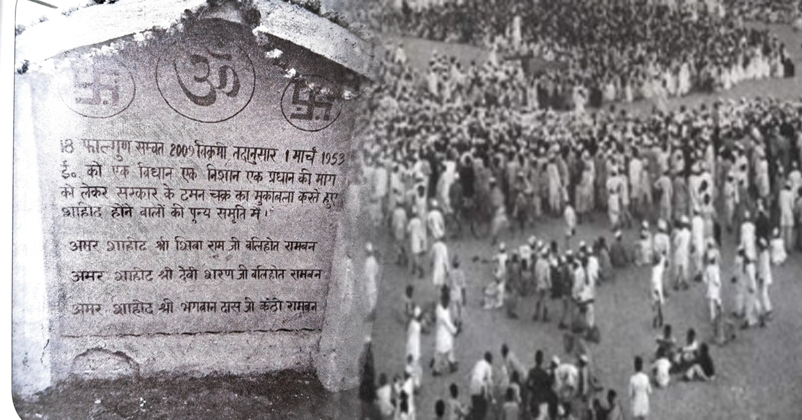 ॐ
18 फाल्गुण सम्वत 2009 विक्रमी तदानुसार 1 मार्च 1953
ई० को एक विधान एक निशान एक प्रधान की मांग
को लेकर सरकार के दमन चक्र का मुकाबला करते हुए
शाहीद होने वालों की पुन्य समृति में।
अमर शाहीद श्री शिबा राम जी बलिहोत रामबन
अमर शाहीद श्री देवी शरण जी बलिहोत रामबन
अमर शाहीद श्री भगवान दास जी कंठी रामबन